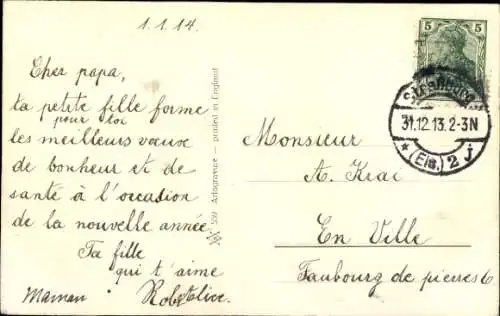 1.1.14.
Cher papa,
ta petite fille forme
pour toi
les meilleurs vœux
de bonheur et de
santé à l'occasion
de la nouvelle année.
Ta fille
qui t'aime
Maman
Artogravure — printed in England
5 5
31.12.13.2-3N
* (Els.) 2 j
Monsieur
A. Krai
En Ville
Faubourg de pierres 6